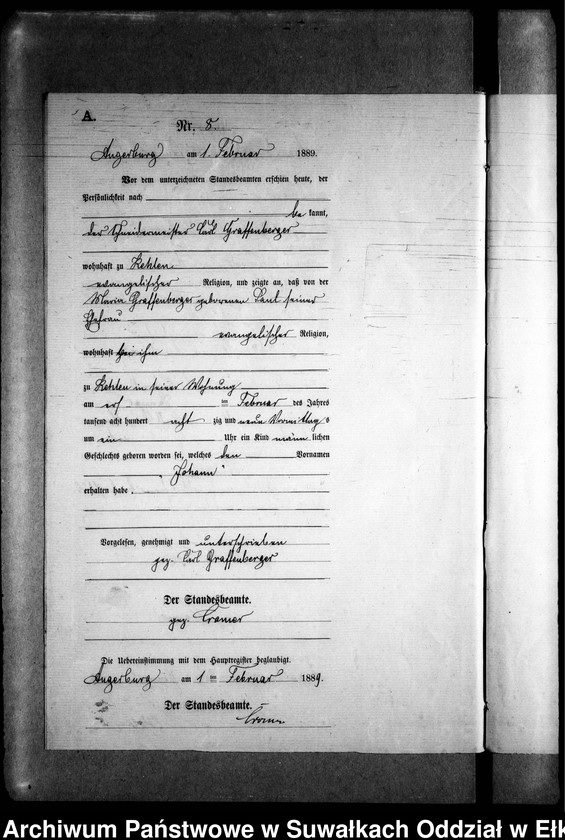 A.
Nr. 8.
Angerburg am 1 Februar 1889.
Vor dem unterzeichneten Standesbeamten erschien heute, der
Persönlichkeit nach
be kannt,
der Schneidermeister Carl Graffenberger
wohnhaft zu Kehlen
evangelischer Religion, und zeigte an, daß von der
Maria Graffenberger geborenen seiner
Ehefrau
evangelischer Religion,
wohnhaft bei ihm
zu Kehlen in seiner Wohnung
am Februar des Jahres
tausend acht hundert acht zig und neun Vormittag s
um ein Uhr ein Kind männ lichen
Geschlechts geboren worden sei, welches den Vornamen
„Johann“
erhalten habe.
Vorgelesen, genehmigt und unterschrieben
gez. Carl Graffenberger
Der Standesbeamte.
gez. Cramer
Die Uebereinstimmung mit dem Hauptregister beglaubigt.
Angerburg am 1 ten Februar 1889.
Der Standesbeamte.
Cramer
Archiwum Państwowe w Suwałkach Oddział w Ełk